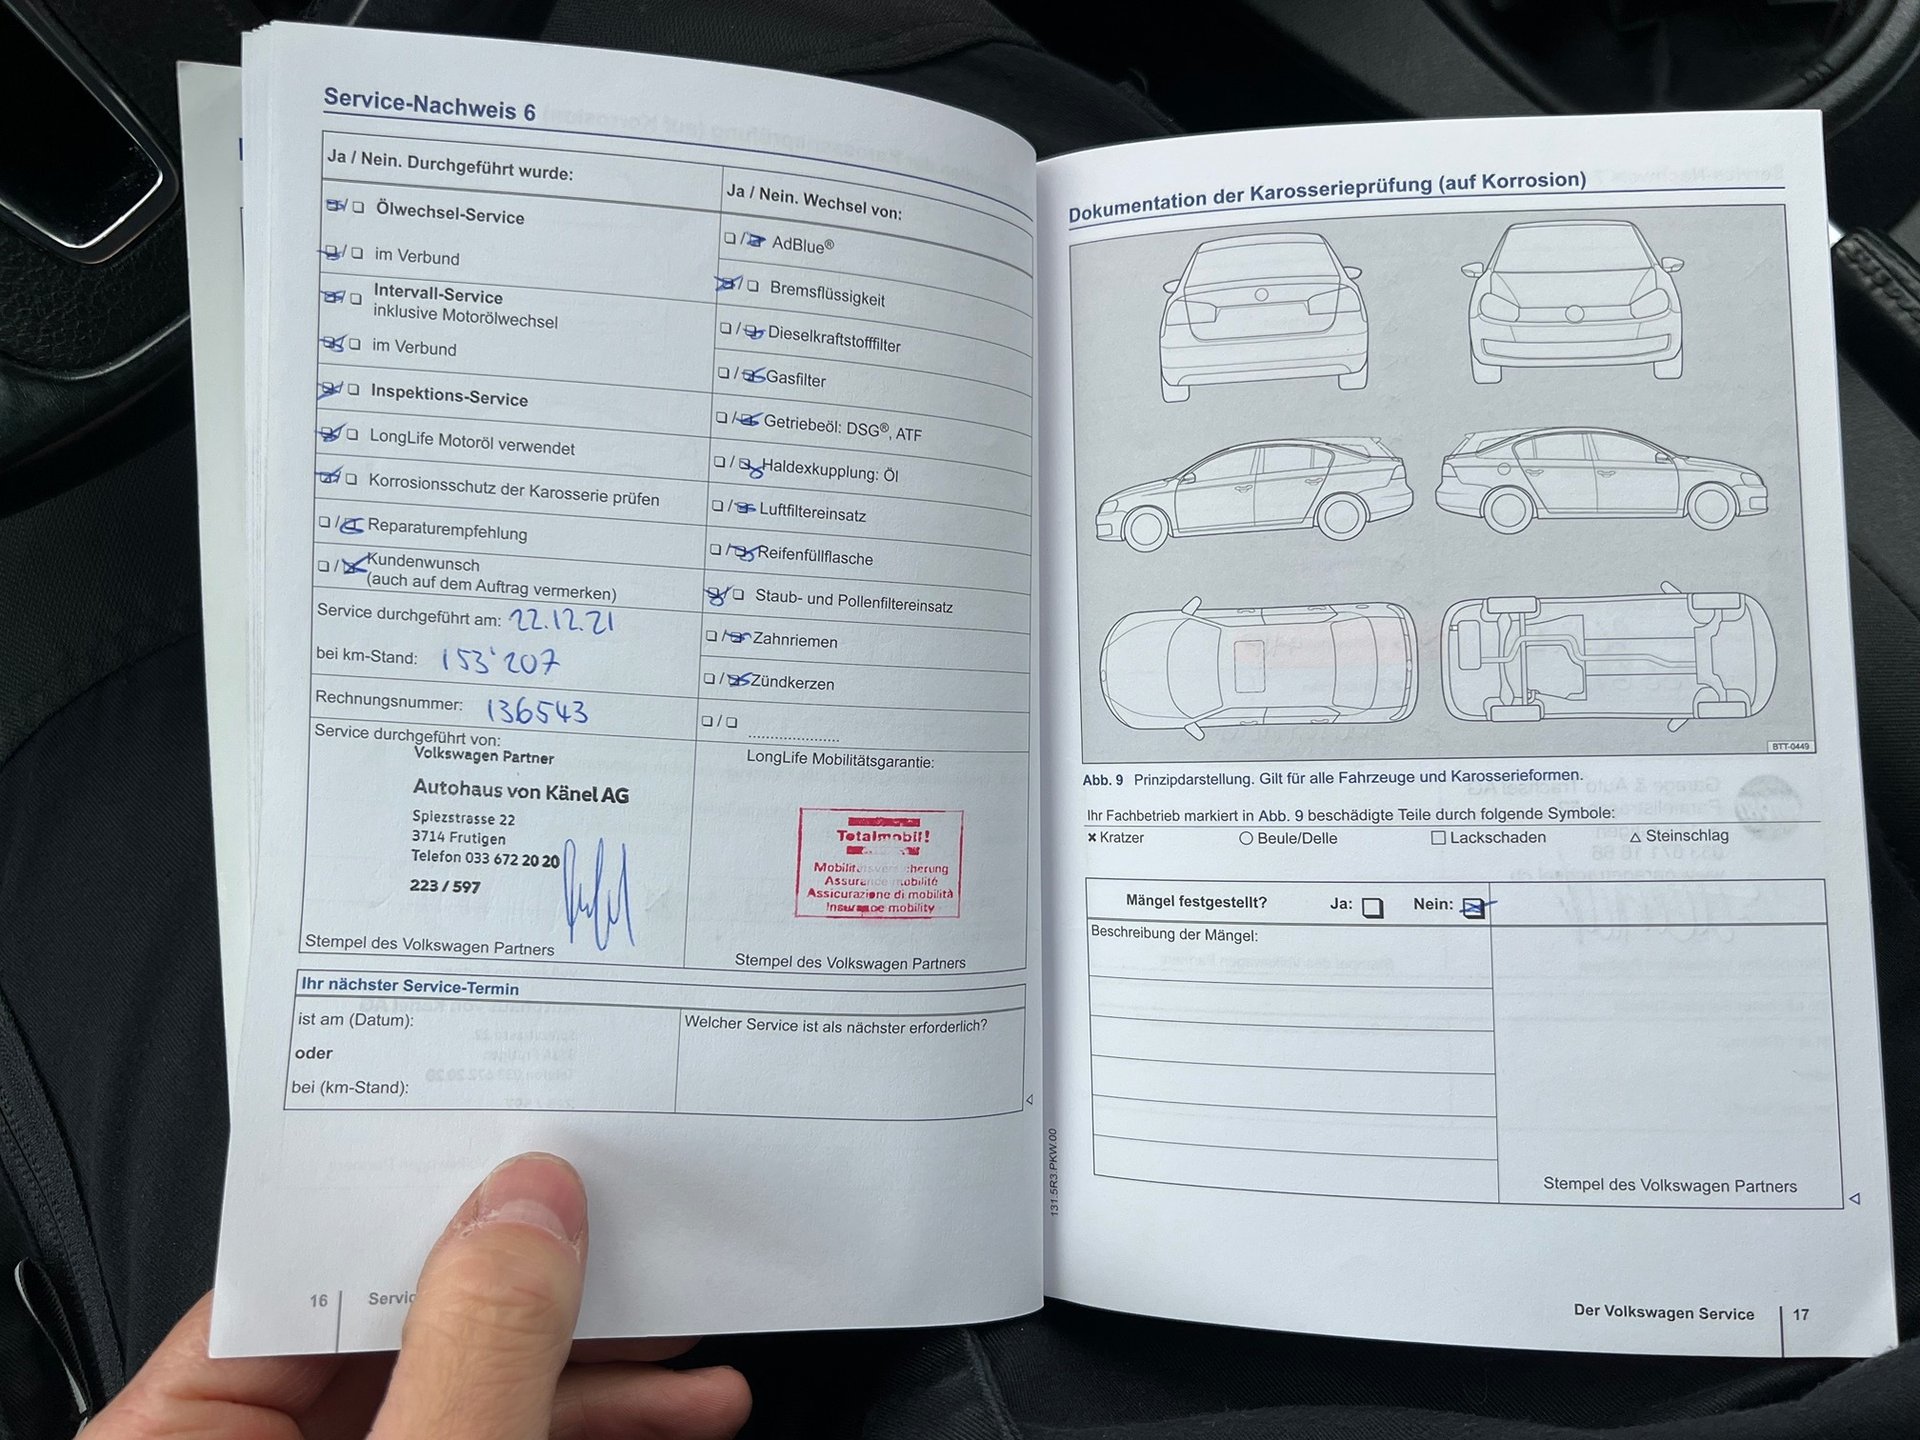 Service-Nachweis 6
Ja / Nein. Durchgeführt wurde:
Ölwechsel-Service
im Verbund
Intervall-Service
inklusive Motorölwechsel
im Verbund
Inspektions-Service
LongLife Motoröl verwendet
Korrosionsschutz der Karosserie prüfen
Reparaturempfehlung
Kundenwunsch
(auch auf dem Auftrag vermerken)
Service durchgeführt am: 22.12.21
bei km-Stand: 153'207
Rechnungsnummer: 136543
Service durchgeführt von:
Volkswagen Partner
Autohaus von Känel AG
Spiezstrasse 22
3714 Frutigen
Telefon 033 672 20 20
223 / 597
Stempel des Volkswagen Partners
Ja / Nein. Wechsel von:
AdBlue®
Bremsflüssigkeit
Dieselkraftstofffilter
Gasfilter
Getriebeöl: DSG®, ATF
Haldexkupplung: Öl
Luftfiltereinsatz
Reifenfüllflasche
Staub- und Pollenfiltereinsatz
Zahnriemen
Zündkerzen
LongLife Mobilitätsgarantie:
Totalmobil!
Assurance mobilité
Assicurazione di mobilità
Insurance mobility
Stempel des Volkswagen Partners
Ihr nächster Service-Termin
ist am (Datum):
oder
bei (km-Stand):
Welcher Service ist als nächster erforderlich?
16
131.5R3.PKW.00
Dokumentation der Karosserieprüfung (auf Korrosion)
BTT-0449
Abb. 9 Prinzipdarstellung. Gilt für alle Fahrzeuge und Karosserieformen.
Ihr Fachbetrieb markiert in Abb. 9 beschädigte Teile durch folgende Symbole:
× Kratzer ○ Beule/Delle □ Lackschaden △ Steinschlag
Mängel festgestellt? Ja: Nein:
Beschreibung der Mängel:
Stempel des Volkswagen Partners
Der Volkswagen Service 17